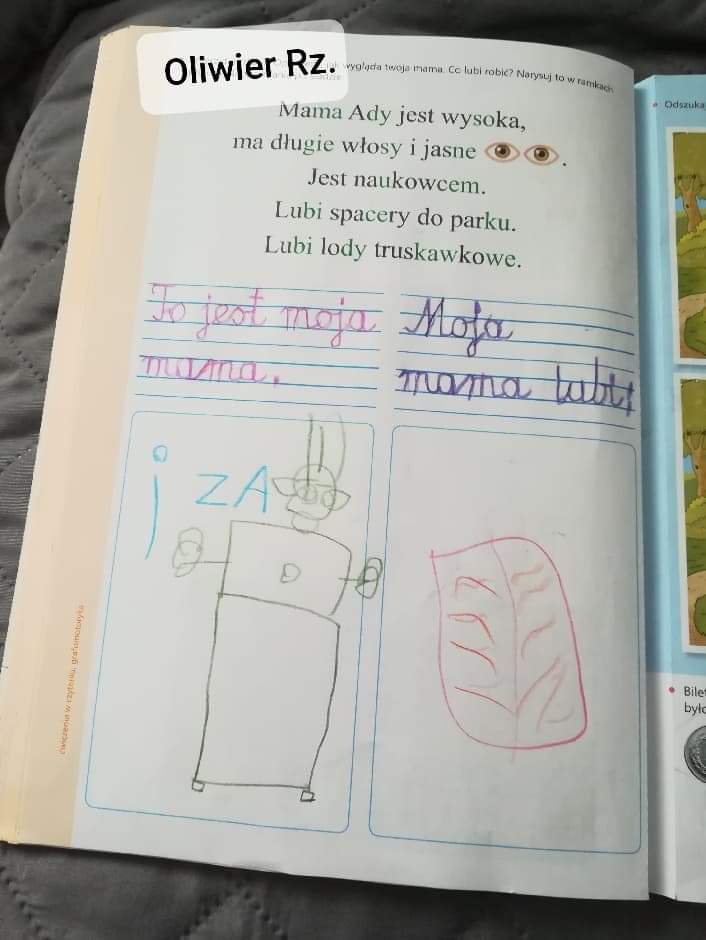 Oliwier Rz.
jak wygląda twoja mama. Co lubi robić? Narysuj to w ramkach
Mama Ady jest wysoka,
ma długie włosy i jasne .
Jest naukowcem.
Lubi spacery do parku.
Lubi lody truskawkowe.
To jest moja
mama.
Moja
mama lubi
j ZA
ćwiczenia w czytaniu, grafomotoryka
Odszuka
Bile
było